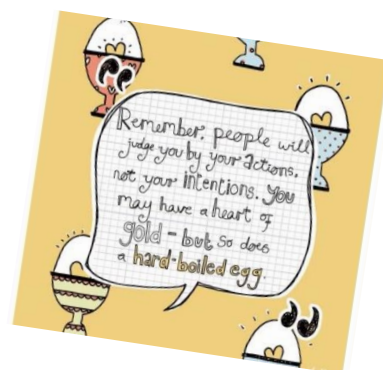 Remember, people will
judge you by your actions,
not your intentions. you
may have a heart of
gold - but so does
a hard-boiled egg.